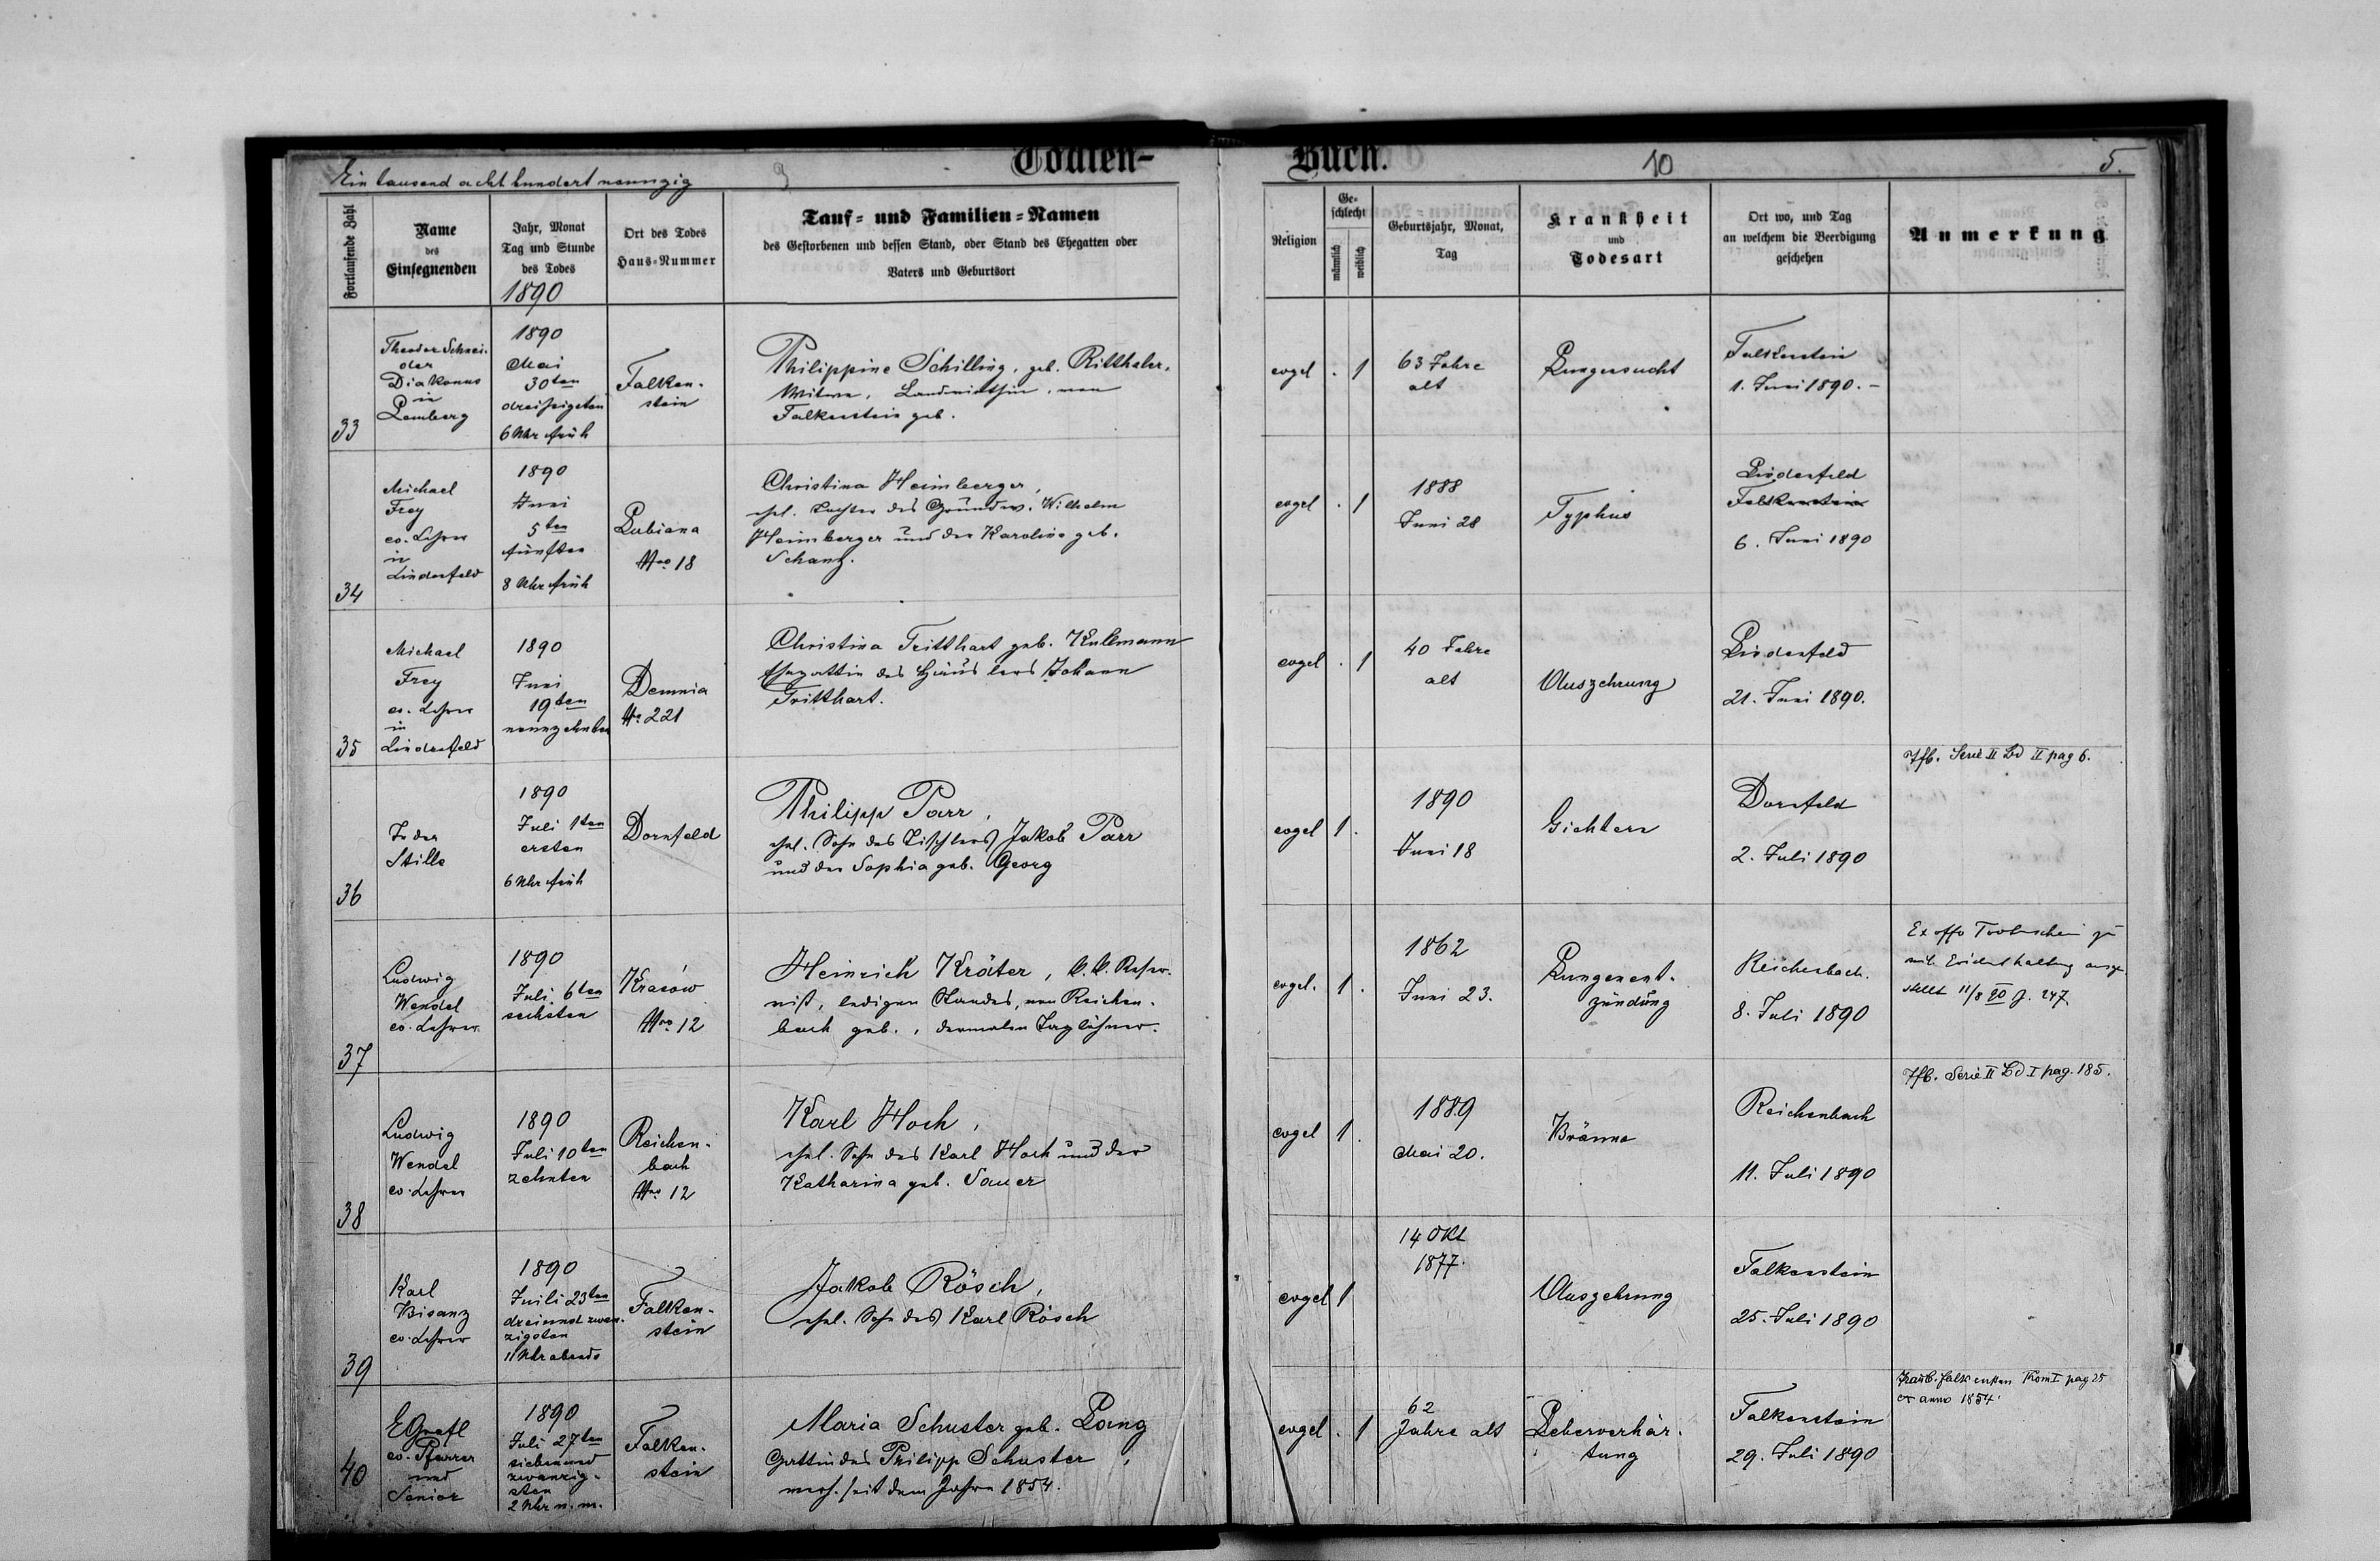 Todten-
Buch.
Ein tausend acht hundert neunzig
9
10
5.
Fortlaufende Zahl
Name
des
Einsegnenden
Jahr, Monat
Tag und Stunde
des Todes
1890
Ort des Todes
Haus-Nummer
Tauf- und Familien-Namen
des Gestorbenen und dessen Stand, oder Stand des Ehegatten oder
Vaters und Geburtsort
Religion
Ge-
schlecht
männlich
weiblich
Geburtsjahr, Monat,
Tag
Krankheit
und
Todesart
Ort wo, und Tag
an welchem die Beerdigung
geschehen
Anmerkung
33
Theodor Schnei-
der
Diakonus
in
Lemberg
1890
Mai
30ten
dreißigsten
6 Uhr früh
Falken-
stein
Philippine Schilling, geb. Ritthaler,
Witwe, Landwirthin, von
Falkenstein geb.
evgel
. 1
63 Jahre
alt
Lungensucht
Falkenstein
1. Juni 1890. –
34
Michael
Frey
ev. Lehrer
in
Lindenfeld
1890
Juni
5ten
fünften
8 Uhr früh
Lubiana
Nro 18
Christina Heimberger,
ehel. Tochter des Grundw. Wilhelm
Heimberger und der Karoline geb.
Schanz.
evgel
. 1
1888
Juni 28
Typhus
Lindenfeld
Falkenstein
6. Juni 1890
35
Michael
Frey
ev. Lehrer
in
Lindenfeld
1890
Juni
19ten
neunzehnten
Demnia
No 221
Christina Tritthart geb. Kullmann
Ehegattin des Häuslers Johann
Tritthart.
evgel
. 1
40 Jahre
alt
Auszehrung
Lindenfeld
21. Juni 1890.
36
In der
Stille
1890
Juli 1ten
ersten
6 Uhr früh
Dornfeld
Philipp Parr,
ehel. Sohn des Tischlers Jakob Parr
und der Sophia geb. Georg
evgel
1 .
1890
Juni 18
Gichtern
Dornfeld
2. Juli 1890
Tfb. Serie II Bd II pag 6.
37
Ludwig
Wendel
ev. Lehrer
1890
Juli 6ten
sechsten
Krasów
Nro 12
Heinrich Kräter, k.k. Reser-
vist, ledigen Standes, von Reichen-
bach geb., dermalen Taglöhner.
evgel.
1 .
1862
Juni 23.
Lungenent-
zündung
Reichenbach.
8. Juli 1890
Ex offo Todtenschein zu
mil. Evidenthaltung ausge-
stellt 11/8 90 J. 247.
38
Ludwig
Wendel
ev. Lehrer
1890
Juli 10ten
zehnten
Reichen-
bach
Nro 12
Karl Hoch,
ehel. Sohn des Karl Hoch und der
Katharina geb. Sauer
evgel
1 .
1889
Mai 20.
Bräune
Reichenbach
11. Juli 1890
Tfb. Serie II Bd I pag. 185.
39
Karl
Bisanz
ev. Lehrer
1890
Juli 23ten
dreiundzwan-
zigsten
11 Uhr abends
Falken-
stein
Jakob Rösch,
ehel. Sohn des Karl Rösch
evgel
1
14 Okt
1877.
Auszehrung
Falkenstein
25. Juli 1890
40
E Grafl
ev. Pfarrer
und
Senior
1890
Juli 27ten
siebenund
zwanzig-
sten
2 Uhr n. m.
Falken-
stein
Maria Schuster geb. Lang
Gattin des Philipp Schuster,
verh. seit dem Jahre 1854.
evgel
. 1
62
Jahre alt
Leberverhär-
tung
Falkenstein
29. Juli 1890
Traub. Falkenstein Thom I pag 25
ex anno 1854.